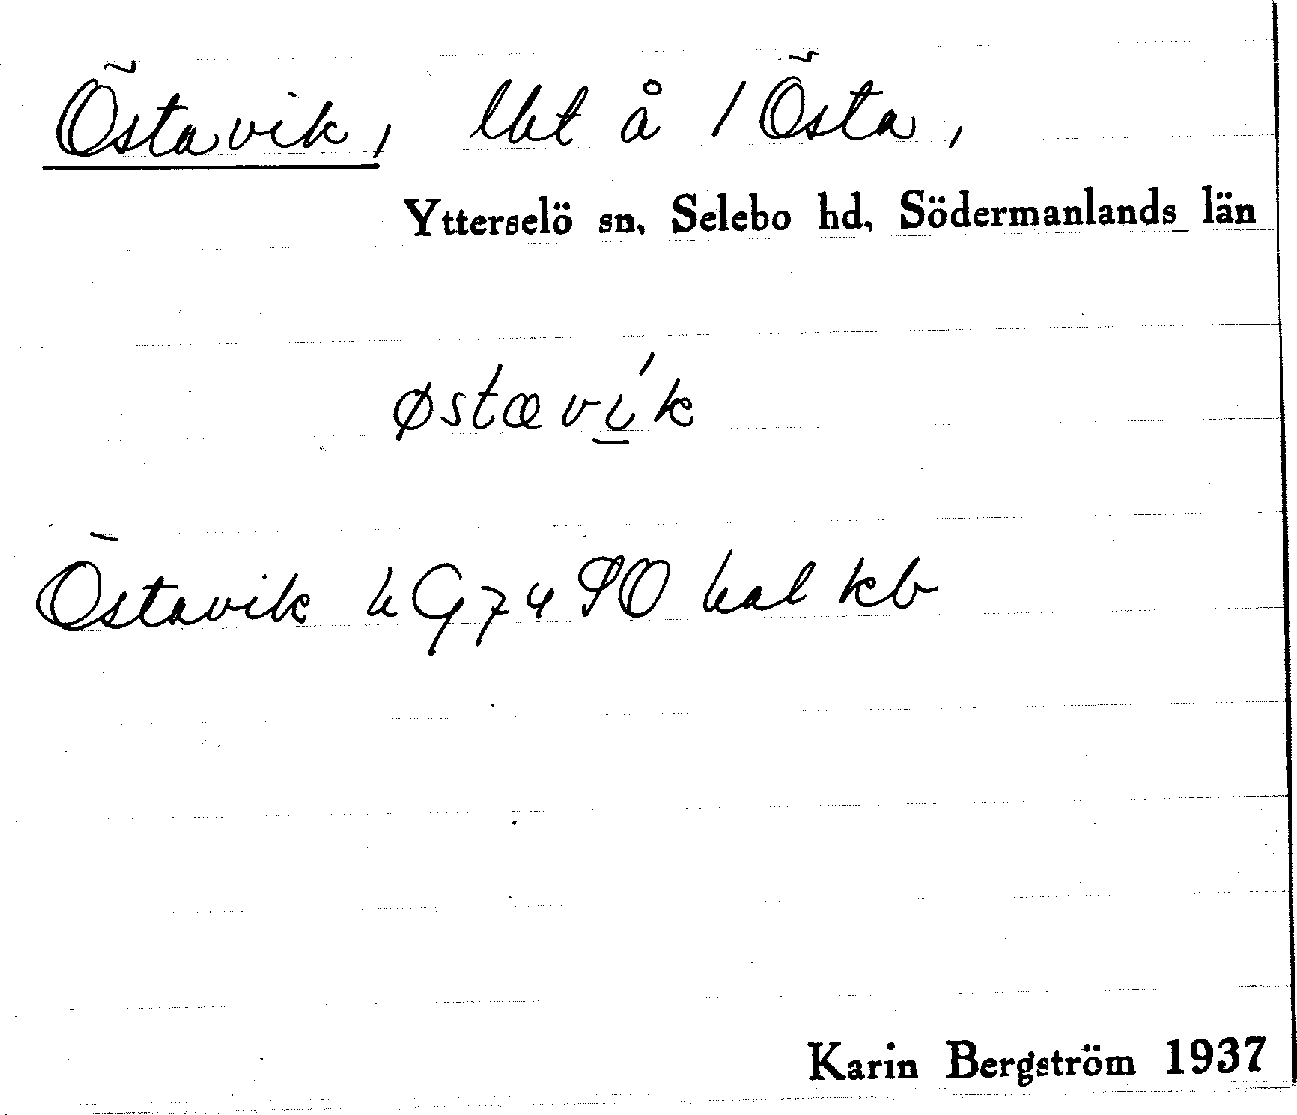 Östavik, lht å / Östa,
Ytterselö sn. Selebo hd. Södermanlands län
østævík
Östavik hG74 90 hal kb
Karin Bergström 1937